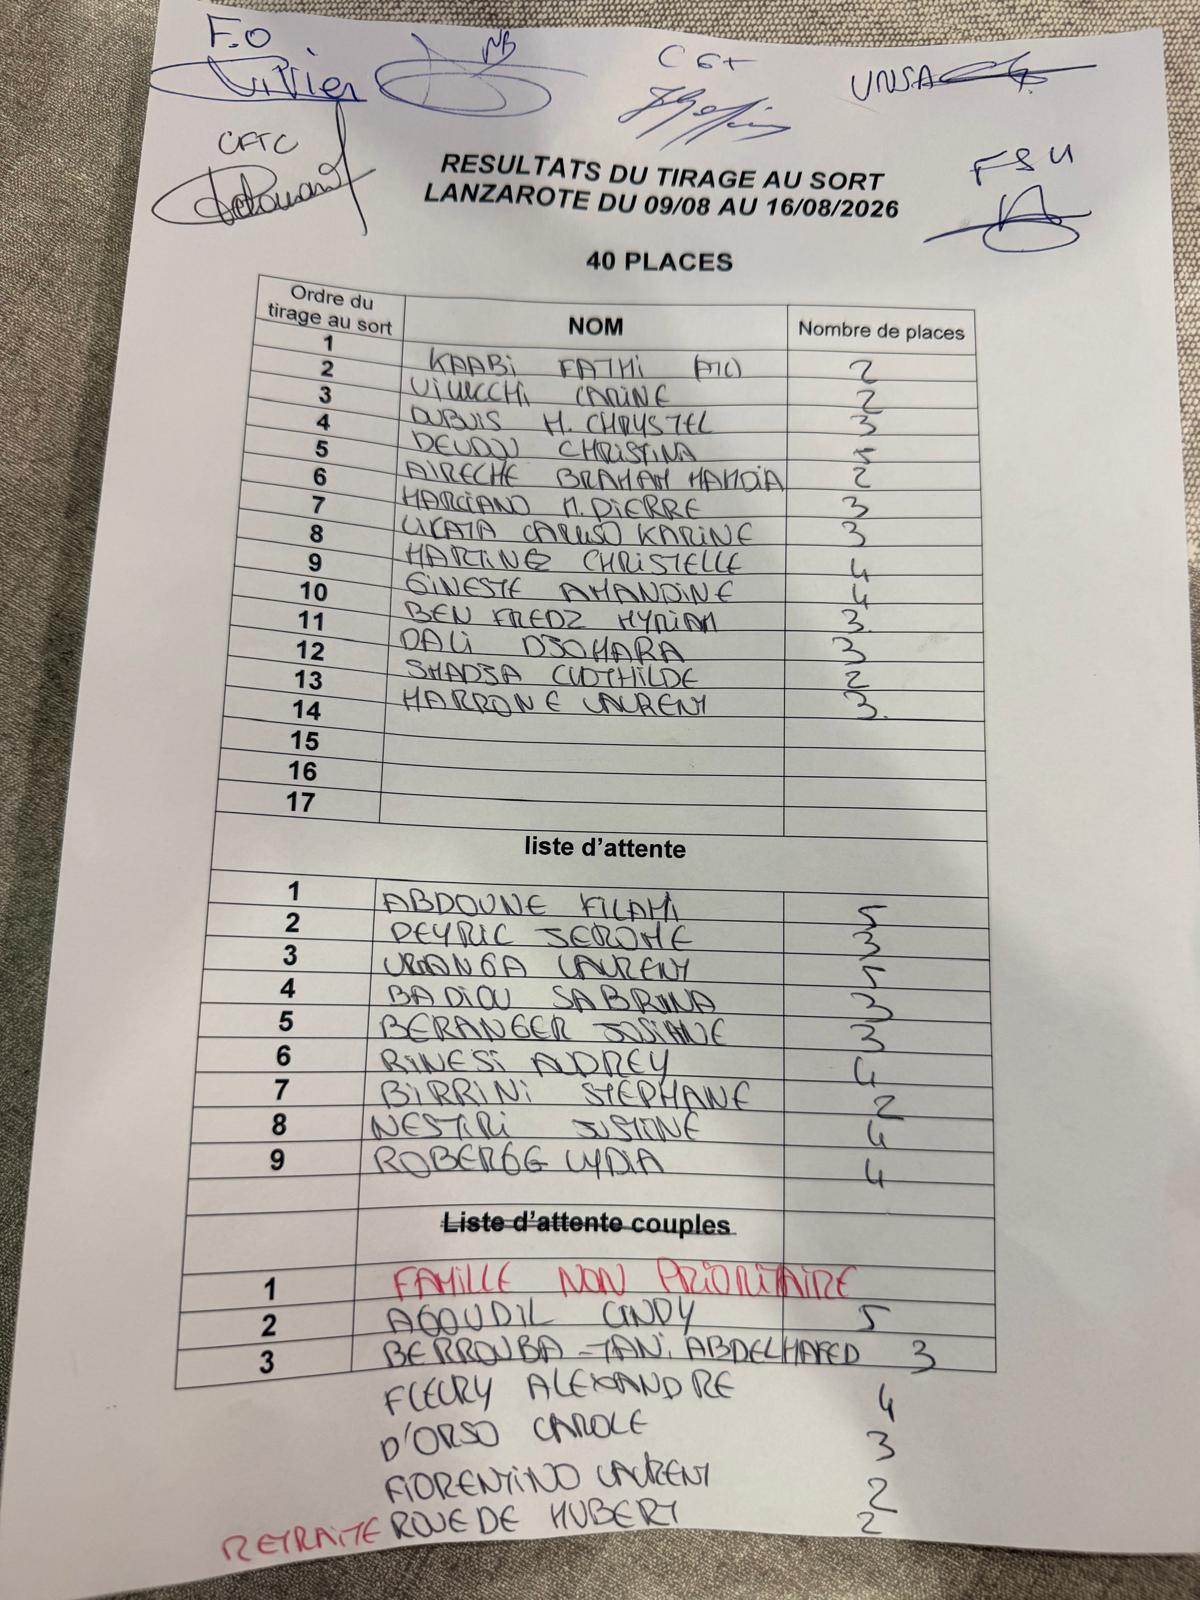 F.O
NB
CGT
UNSA
CFTC
FSU
RESULTATS DU TIRAGE AU SORT
LANZAROTE DU 09/08 AU 16/08/2026
40 PLACES
Ordre du tirage au sort NOM Nombre de places
1
2 KAABI FATHI 2
3 CARINE 2
4 DUBUIS M. CHRYSTEL 3
5 CHRISTINA 5
6 AIRECHE BRAHAM HAMDIA 2
7 MARCIANO M. PIERRE 3
8 LICATA CARUSO KARINE 3
9 MARTINEZ CHRISTELLE 4
10 GINESTE AMANDINE 4
11 BEN FREDZ MYRIAM 3
12 DALI DJOHARA 3
13 SHADJA CLOTHILDE 2
14 MARRONE LAURENT 3.
15
16
17
liste d’attente
1 ABDOUNE 5
2 PEYRIC JEROME 3
3 URANGA LAURENT 5
4 BADIOU SABRINA 3
5 BERANGER JOSIANE 3
6 RINESI AUDREY 4
7 BIRRINI STEPHANE 2
8 NESTIRI JUSTINE 4
9 ROBERGE LYDIA 4
Liste d’attente couples
1 FAMILLE NON PRIORITAIRE
2 AGOUDIL CINDY 5
3 BERROUBA-TANI ABDELHAFED 3
FLEURY ALEXANDRE 4
D'ORSO CAROLE 3
FIORENTINO LAURENT 2
RETRAITE ROUEDE HUBERT 2